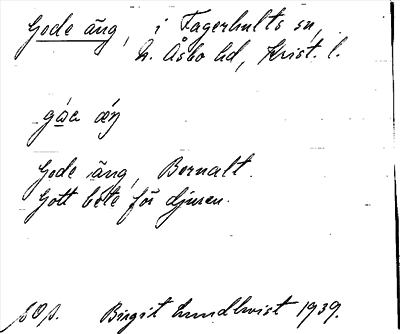 Gode äng, i Fagerhults sn,
N. Åsbo hd, Krist. l.
Gode äng, Bornalt.
Gott bete för djuren.
Birgit Lundkvist 1939.